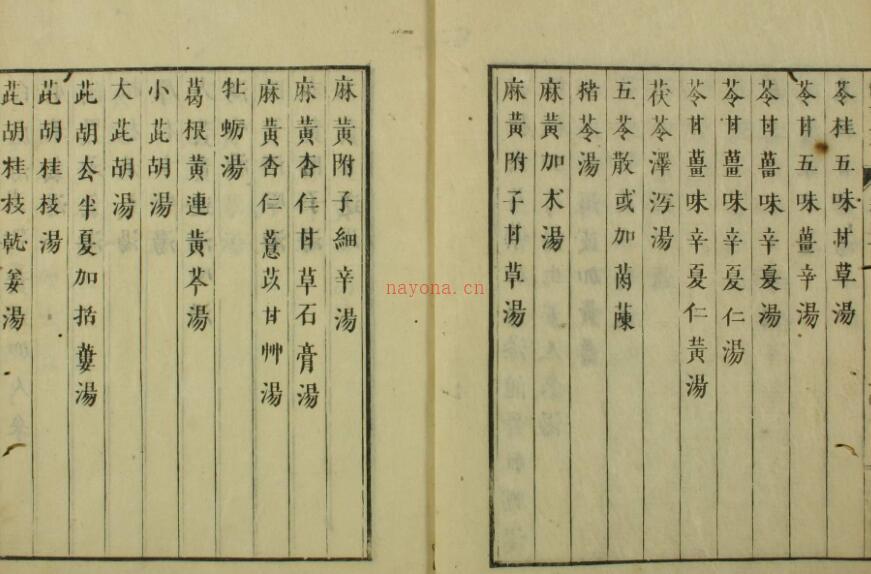 苓桂五味甘草湯
苓甘五味薑辛湯
苓甘薑味辛夏湯
苓甘薑味辛夏仁湯
苓甘薑味辛夏仁黃湯
茯苓澤泻湯
五苓散或加茵蔯
猪苓湯
麻黃加朮湯
麻黃附子甘草湯
麻黃附子細辛湯
麻黃杏仁甘草石膏湯
麻黃杏仁薏苡甘艸湯
牡蛎湯
葛根黃連黃芩湯
小茈胡湯
大茈胡湯
茈胡去半夏加括蔞湯
茈胡桂枝湯
茈胡桂枝乾姜湯
nayona.cn